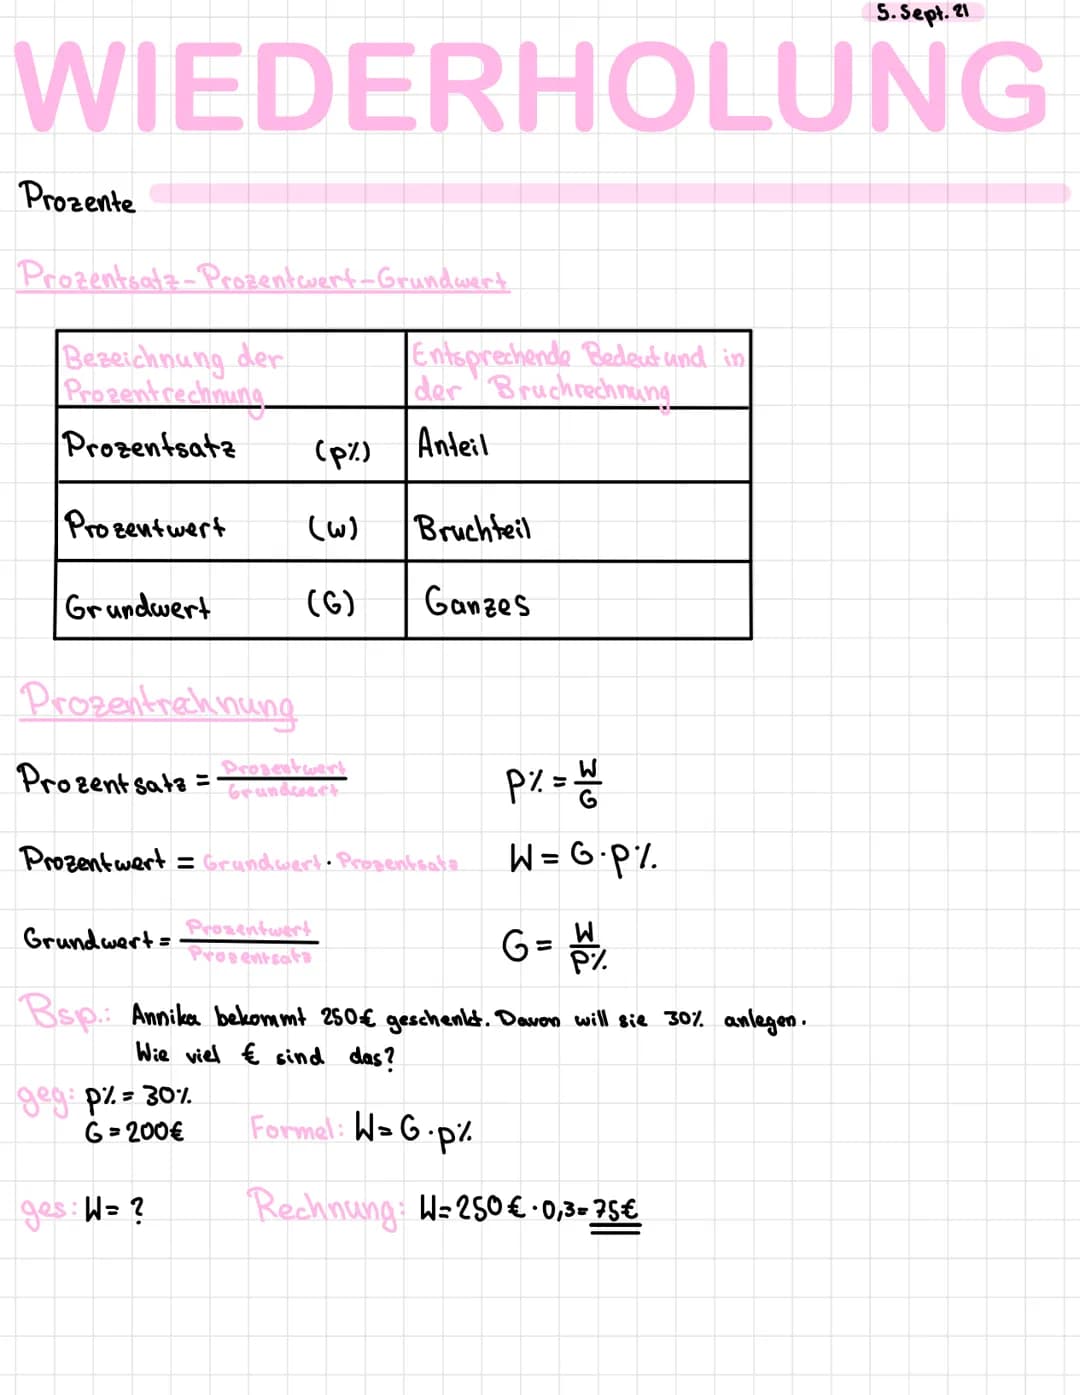 5. Sept. 21
WIEDERHOLUNG
Prozente
Prozentsatz-Prozentwert-Grundwert
Bezeichnung der Prozentrechnung
Entsprechende Bedeutund in der Bruchrechnung
Prozentsatz (p%) Anteil
Prozentwert (w) Bruchteil
Grundwert (G) Ganzes
Prozentrechnung
Prozentsatz = Prozentwert / Grundwert P% = W / G
Prozentwert = Grundwert · Prozentsatz W = G · P%
Grundwert = Prozentwert / Prozentsatz G = W / P%
Bsp.: Annika bekommt 250€ geschenkt. Davon will sie 30% anlegen.
Wie viel € sind das?
geg: p% = 30%
G = 200€ Formel: W = G · p%
ges: W = ? Rechnung: W = 250€ · 0,3 = 75€